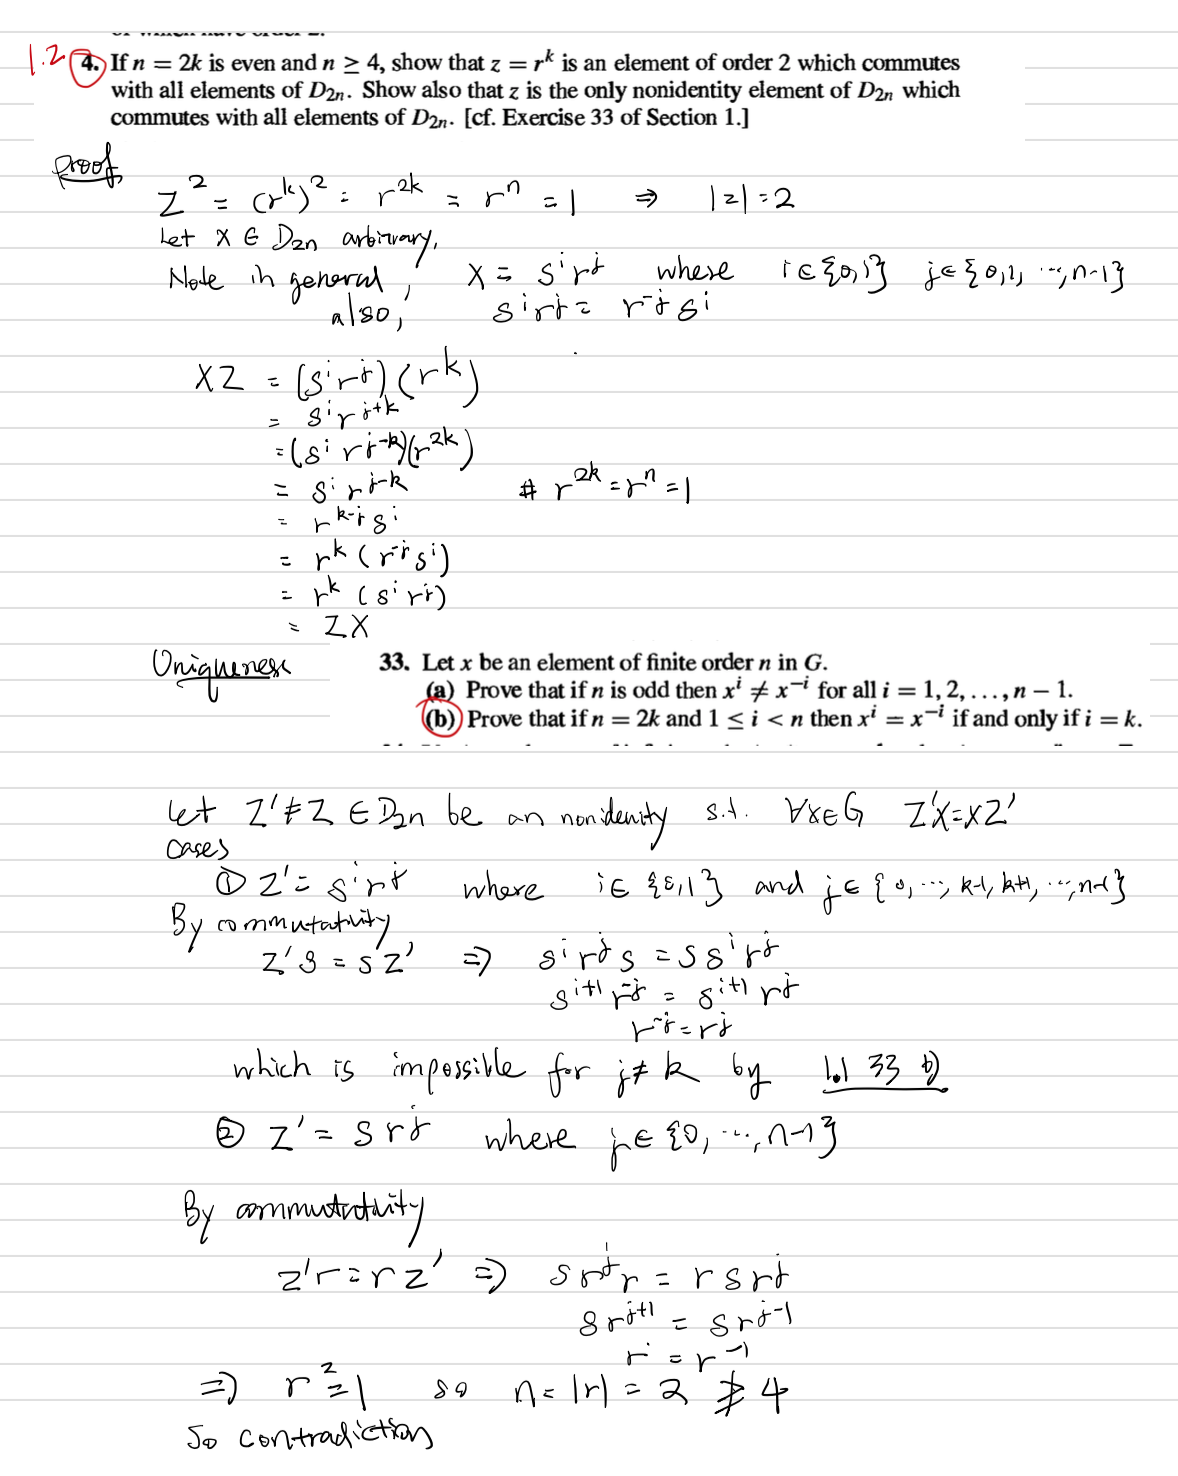 1.2 4. If n = 2k is even and n ≥ 4, show that z = r^k is an element of order 2 which commutes
with all elements of D_{2n}. Show also that z is the only nonidentity element of D_{2n} which
commutes with all elements of D_{2n}. [cf. Exercise 33 of Section 1.]
Proof
z² = (r^k)² = r^{2k} = r^n = 1 ⇒ |z| = 2
Let x ∈ D_{2n} arbitrary,
Note in general, x = s^i r^j where i ∈ {0,1} j ∈ {0,1, ..., n-1}
also, s^i r^j = r^{-j} s^i
xz = (s^i r^j)(r^k)
= s^i r^{j+k}
= (s^i r^{j-k})(r^{2k})
= s^i r^{j-k} # r^{2k} = r^n = 1
= r^{k-j} s^i
= r^k (r^{-j} s^i)
= r^k (s^i r^j)
= zx
Uniqueness
33. Let x be an element of finite order n in G.
(a) Prove that if n is odd then x^i ≠ x^{-i} for all i = 1, 2, ..., n − 1.
(b) Prove that if n = 2k and 1 ≤ i < n then x^i = x^{-i} if and only if i = k.
Let z' ≠ z ∈ D_{2n} be an nonidenity s.t. ∀x∈G z'x = xz'
cases
① z' = s^i r^j where i ∈ {0,1} and j ∈ {0, ..., k-1, k+1, ..., n-1}
By commutativity
z's = sz' ⇒ s^i r^j s = s s^i r^j
s^{i+1} r^{-j} = s^{i+1} r^j
r^{-j} = r^j
which is impossible for j ≠ k by 1.1 33 b)
② z' = s r^j where j ∈ {0, ..., n-1}
By commutativity
z'r = rz' ⇒ s r^j r = r s r^j
s r^{j+1} = s r^{j-1}
r = r^{-1}
⇒ r² = 1 so n = |r| = 2 ≱ 4
So contradiction